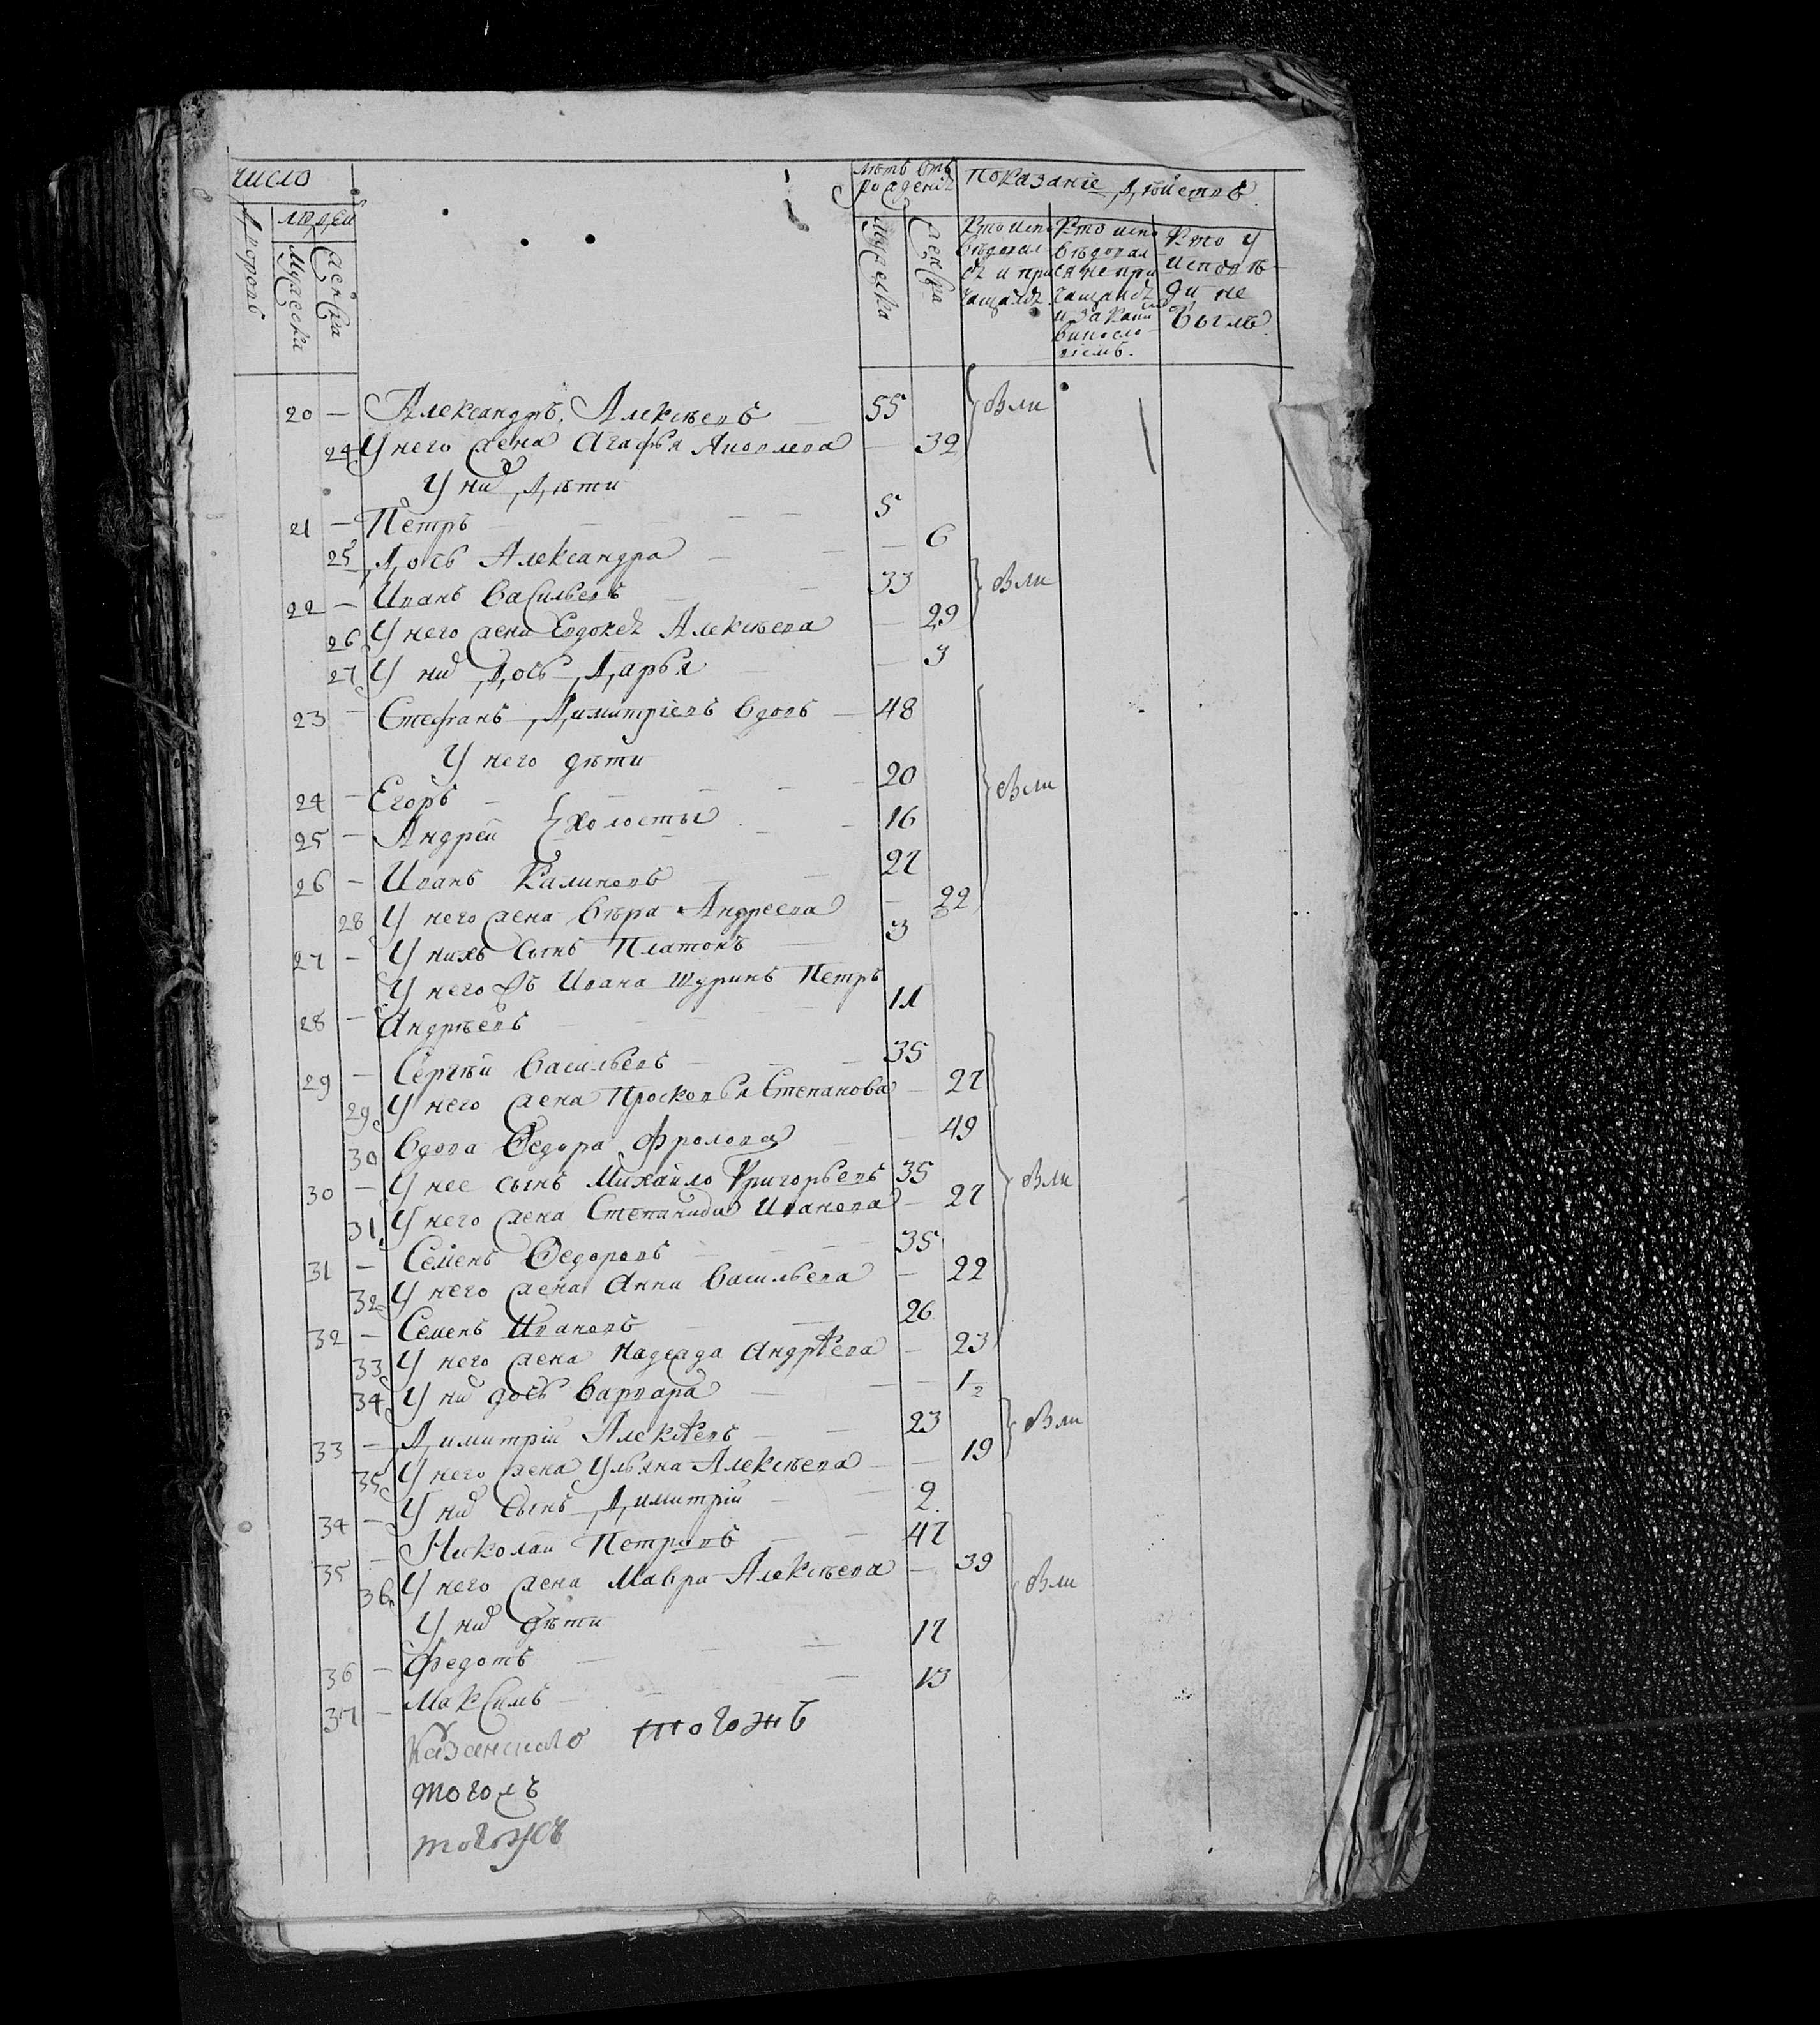 число
лѣтъ отъ рожденія
показаніе дѣйствъ
людей
дворовъ
мужеска
женска
мужеска
женска
Кто испо
вѣдовал
ся и при
чащался
Кто испо
вѣдовал
ся не при
чащался
и за каки
Кто у
исповѣ
ди не
былъ
20 — Александръ Алексѣевъ 55 были
24 У него жена Агафья Яковлева — 32
У них дѣти
21 — Петръ 5
25 дочь Александра — 6
22 — Иванъ Васильевъ 33 были
26 У него жена Евдокея Алексѣева — 29
27 У них дочь Дарья — 3
23 — Стефанъ Димитріевъ вдовъ — 48
У него дѣти
24 — Егоръ 20 были
25 — Андрей } холосты 16
26 — Иванъ Калиновъ 27
28 У него жена Вѣра Андреева — 22
27 — У нихъ сынъ Платонъ 3
У него Ивана шуринъ Петръ
28 — Андрѣевъ 11
29 — Сергѣй Васильевъ 35
29 У него жена Просковья Степанова — 27
30 Вдова Ѳедора Фролова — 49
30 — У нее сынъ Михайло Григорьевъ 35 были
31 У него жена Степанида Иванова — 27
31 — Семенъ Ѳедоровъ 35
32 У него жена Анна Васильева — 22
32 — Семенъ Ивановъ 26
33 У него жена Надежда Андрѣева — 23
34 У них дочь Варвара — 1/2
33 — Димитрій Алексѣевъ 23 были
35 У него жена Ульяна Алексѣева — 19
34 — У них сынъ Димитрій 2
35 — Николай Петровъ 47
36 У него жена Мавра Алексѣева — 39 были
У них дѣти
36 — Федотъ 17
37 — Максимъ 13
Казанскаго тогожъ
тогожъ
тогожъ